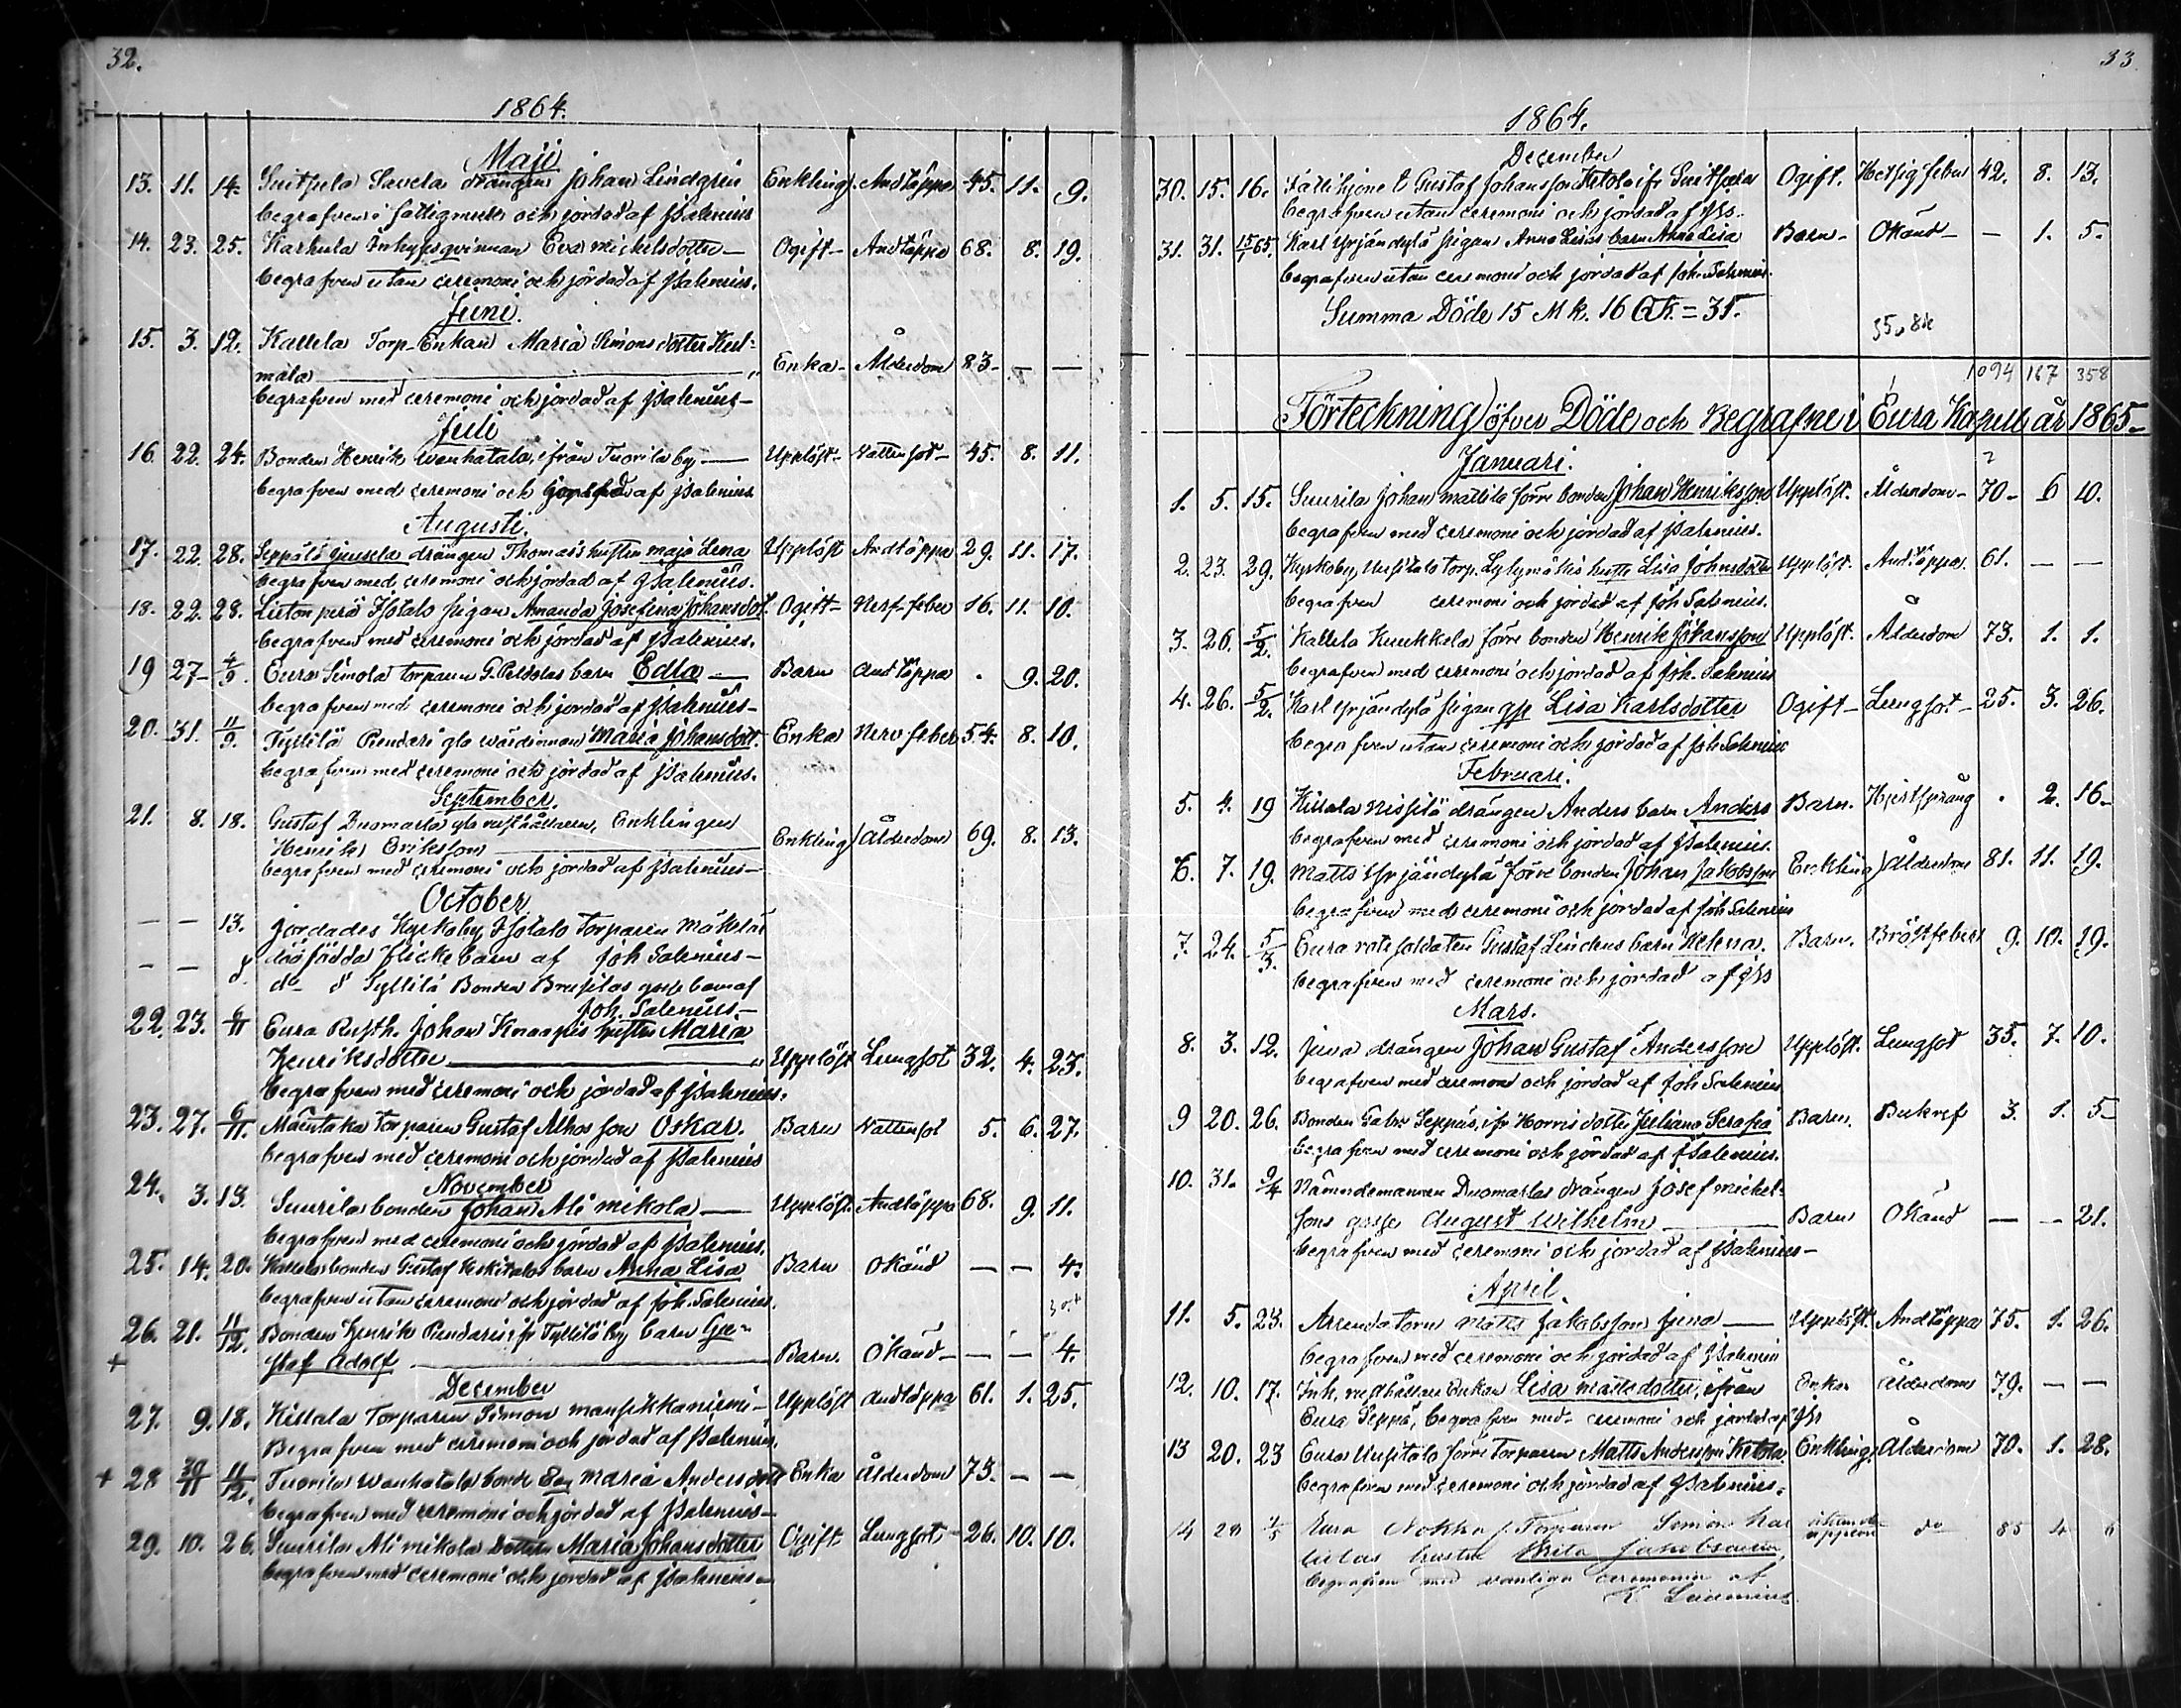 32.
1864.
Maji
13. 11. 14. Suitsula Savela drängen Johan Lindgren Enkling Andtäppa 45. 11. 9.
begrafven i fattigmull och jordad af JSalenius
14. 23. 25. Karhula Inhysesqvinnan Eva Mickelsdotter – Ogift – Andtäppa 68. 8. 19.
begrafven utan ceremoni och jordad af JSalenius.
Juni.
15. 3. 12. Kallela Torp. Enkan Maria Simonsdotter
mala Enka – Ålderdom 83 – – –
begrafven med ceremoni och jordad af JSalenius –
Juli
16. 22. 24. Bonden Henrik Wanhatalo, ifrån Tuorila by – Upplöst – Vattensot – 45. 8. 11.
begrafven med ceremoni och jordad af JSalenius
Augusti.
17. 22. 28. Seppälä Juusela drängen Thomas's hustru Maja Lena Upplöst Andtäppa 29. 11. 17.
begrafven med ceremoni och jordad af JSalenius.
18. 22. 28. Isotalo pigan Amanda Josefina Johansdot. Ogift – Nerf-feber 16. 11. 10.
begrafven med ceremoni och jordad af JSalenius.
19 27 – 4/9. Eura Simola torparen G. Peldolas barn Edla – Barn Andtäppa . 9. 20.
begrafven med ceremoni och jordad af JSalenius –
20. 31. 11/9. Tyllilä Pendari gla wärdinnan Maria Johansdott. Enka Nervfeber 54. 8. 10.
begrafven med ceremoni och jordad af JSalenius.
September.
21. 8. 18. Gustaf Duomarla gla rusthållaren, Enklingen
Henrik Eriksson Enkling Ålderdom 69. 8. 13.
begrafven med ceremoni och jordad af JSalenius –
October
– – 13. Jordades Kyrkoby Isotalo Torparen Mäkelä's
dödfödda flickebarn af Joh Salenius –
– – d. do d Tyllilä Bonden gosse barn af
Joh. Salenius. –
22. 23. 6/11 Eura Rusth. Johan Knaapis hustru Maria
Henriksdotter Upplöst Lungsot 32. 4. 23.
begrafven med ceremoni och jordad af JSalenius.
23. 27. 6/11. Mäntaka torparen Gustaf Alhos son Oskar. Barn Vattensot 5. 6. 27.
begrafven med ceremoni och jordad af JSalenius
November
24. 3. 13. Suurila bonden Johan Ali Mikola – Upplöst. Andtäppa 68. 9. 11.
begrafven med ceremoni och jordad af JSalenius.
25. 14. 20. Kallela bonden Gustaf Keskitalos barn Anna Lisa Barn Okänd – – 4.
begrafven utan ceremoni och jordad af Joh. Salenius.
26. 21. 11/12. Bonden Henrik Pendaris ifr Tyllilä by barn Gu-
+ staf Adolf Barn. Okänd – – – 4.
December
27. 9. 18. Kissala Torparen Simon Mansikkaniemi – Upplöst Andtäppa 61. 1. 25.
Begrafven med ceremoni och jordad af JSalenius.
+ 28 30/11 11/12. Tuorila Wanhatalo bonde Enk Maria Andersdott Enka Ålderdom 73. – –
begrafven med ceremoni och jordad af JSalenius –
29. 10. 26. Suurila Ali Mikola Dottern Maria Johansdotter Ogift Lungsot – 26. 10. 10.
begrafven med ceremoni och jordad af JSalenius –
33
1864.
December
30. 15. 16. Fattighjone t Gustaf Johansson Ketola ifr Suitsula Ogift. Hetsig feber 42. 8. 13.
begrafven utan ceremoni och jordad af JSs.
31. 31. 15/1 65. Karl Yrjändylä pigan Anna Lisas barn Anna Lisa Barn – Okänd – – 1. 5.
begrafven utan ceremoni och jordad af Joh. Salenius.
Summa Döde 15 Mk. 16 Qk. = 31.
1094 167 358
Förteckning öfver Döde och Begrafne i Eura Kapell år 1865 –
Januari.
1. 5. 15. Suurila Johan Mattila förre bonden Johan Henriksson Upplöst. Ålderdom – 70 – 6 10.
begrafven med ceremoni och jordad af JSalenius.
2. 23. 29. Kyrkoby, Uusitalo torp. Lylymäkis hustru Lisa Johansdotter Upplöst. Andtäppa 61. – –
begrafven ceremoni och jordad af Joh Salenius.
3. 26. 5/2. Kallela Kuukkela förre bonden Henrik Johansson Upplöst. Ålderdom 73. 1. 1.
begrafven med ceremoni och jordad af Joh. Salenius
4. 26. 5/2. Karl Yrjändylä pigan Lisa Karlsdotter Ogift – Lungsot – 25. 3. 26.
begrafven utan ceremoni och jordad af Joh Salenius
Februari.
5. 4. 19 Kissala Nissilä drängen Anders barn Anders Barn. Hjertsprång . 2. 16 –
begrafven med ceremoni och jordad af JSalenius.
6. 7. 19. Matts Yrjändylä förre bonden Johan Jakobsson Enkling Ålderdom 81. 11. 19.
begrafven med ceremoni och jordad af Joh Salenius
7. 24. 5/3. Eura rote soldaten Gustaf Lindens barn Helena. Barn. Bröstfeber 9. 10. 19.
begrafven med ceremoni och jordad af JSs
Mars.
8. 3. 12. Juva drängen Johan Gustaf Andersson Upplöst. Lungsot 35. 7. 10.
begrafven med ceremoni och jordad af Joh Salenius
9 20. 26. Bonden Gabr. Seppäs, ifr Horris dotter Juliana Serafia Barn. Bukref 3. 1. 5 –
begrafven med ceremoni och jordad af JSalenius.
10. 31. 9/4 Nämndemannen Duomarlas drängen Josef Mickel-
sons gosse August Wilhelm Barn Okänd – – 21.
begrafven med ceremoni och jordad af JSalenius –
April.
11. 5. 23. Arrendatorn Matts Jakobsson Juva – Upplöst. Andtäppa 75. 1. 26.
begrafven med ceremoni och jordad af JSalenius
12. 10. 17. Inh. rusthållare Enkan Lisa Mattsdotter, ifrån Enka Ålderdom 79. – –
Eura Seppä, begrafven med ceremoni och jordad af JSs
13 20. 23 Eura Uusitalo förre Torparen Matts Andersson Ketola. Enkling. Ålderdom 70. 1. 28.
begrafven med ceremoni och jordad af JSalenius.
14 28 Eura Nokka f. Torparen Simon
hustru Brita Jakobsdotter, do 85 4
begrafven med vanliga ceremonier af